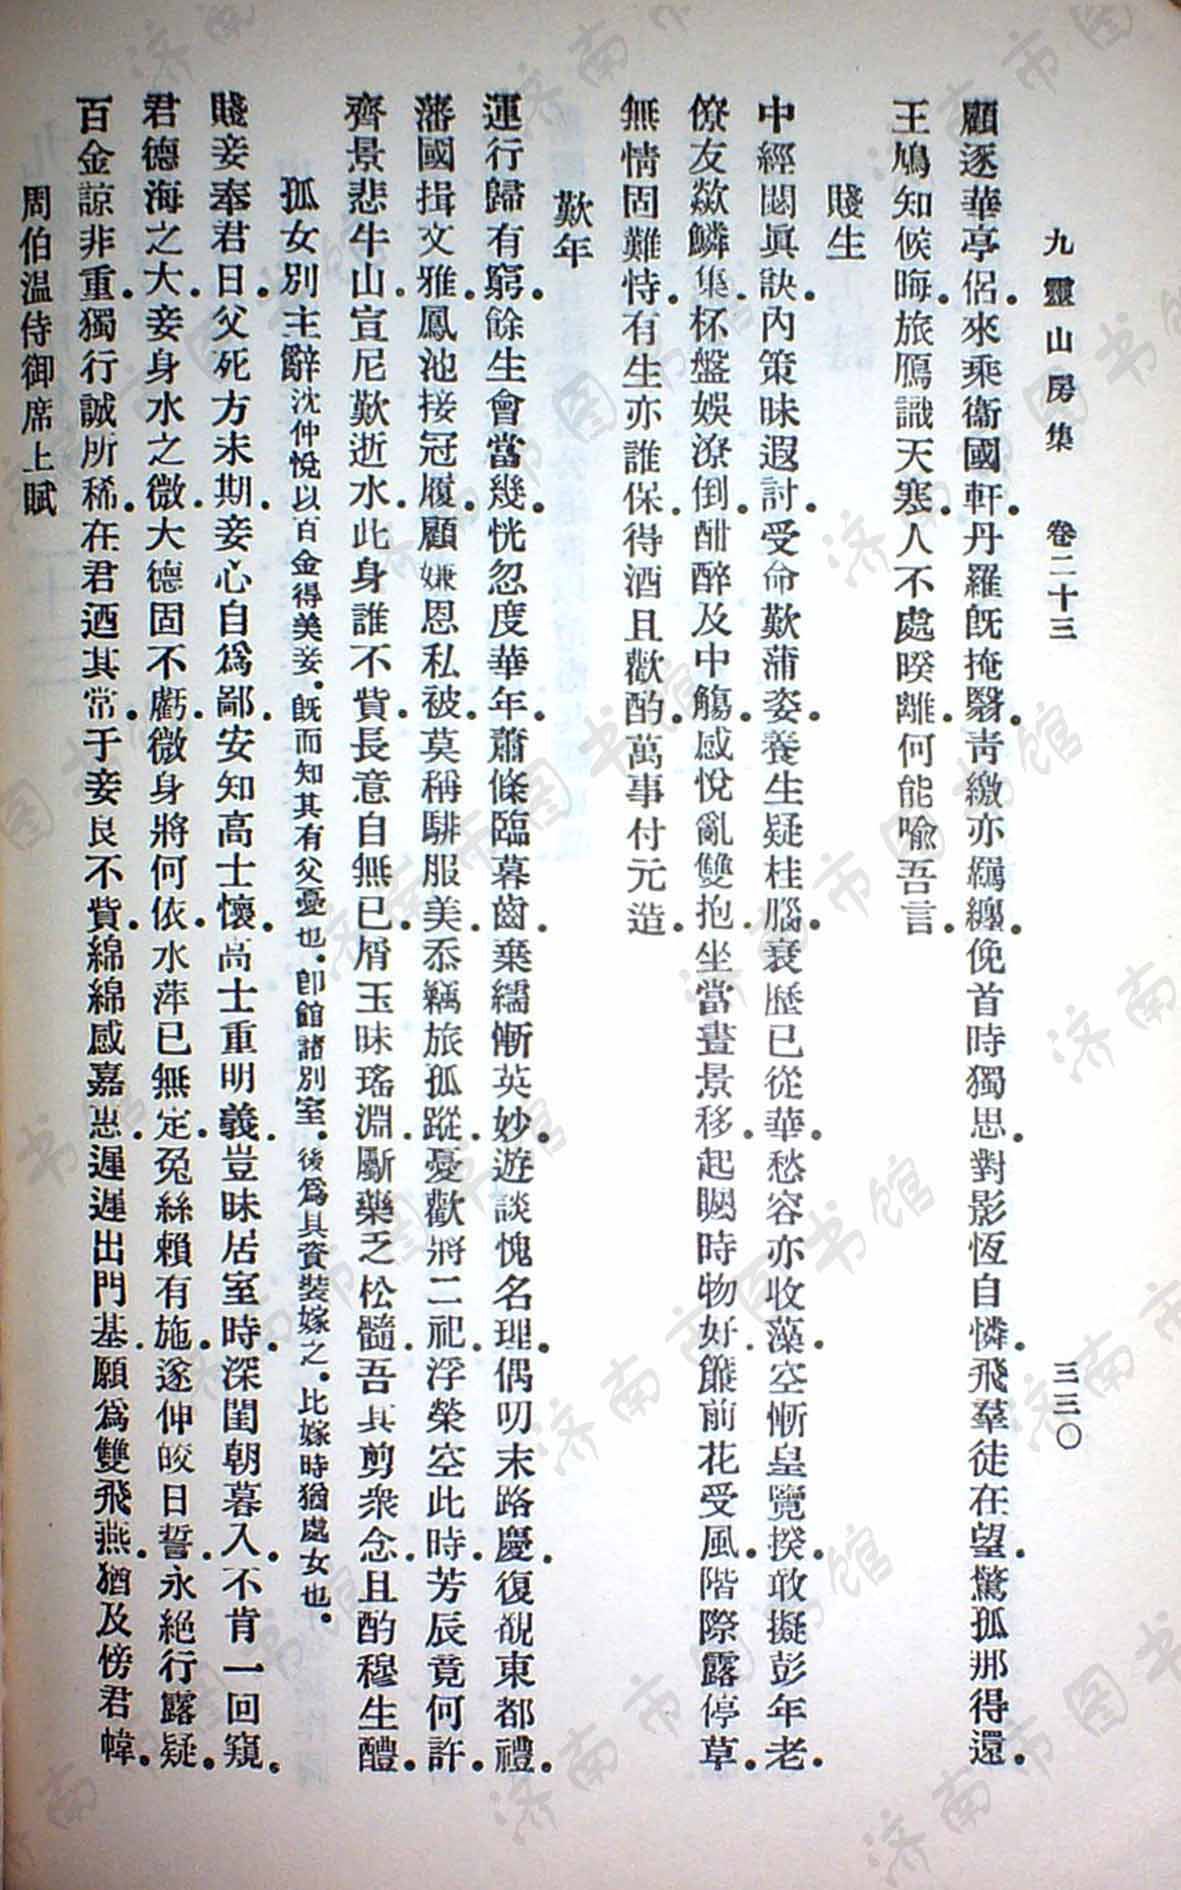 九靈山房集　卷二十三　三三〇
顧逐華亭侶。來乘衞國軒。丹羅旣掩翳。靑繳亦羈纏。俛首時獨思。對影恆自憐。飛羣徒在望。驚孤那得還。
王鳩知候晦。旅鴈識天寒。人不處暌離。何能喩吾言。
賤生
中經閟眞訣。內策昧遐討。受命歎蒲姿。養生疑桂腦。衰歷已從華。愁容亦收藻。空慚皇覽揆。敢擬彭年老。
僚友歘鱗集。杯盤娛潦倒。酣醉及中觴。感悅亂雙抱。坐當晝景移。起矚時物好。簾前花受風。階際露停草。
無情固難恃。有生亦誰保。得酒且歡酌。萬事付元造。
歎年
運行歸有窮。餘生會當幾。恍忽度華年。蕭條臨暮齒。棄繻慚英妙。遊談愧名理。偶叨末路慶。復覩東都禮。
藩國揖文雅。鳳池接冠履。顧嫌恩私被。莫稱騑服美。忝竊旅孤蹤。憂歡將二祀。浮榮空此時。芳辰竟何許。
齊景悲牛山。宣尼歎逝水。此身誰不貲。長意自無已。屑玉昧瑤淵。斸藥乏松髓。吾其剪衆念。且酌穆生醴。
孤女別主辭沈仲悅以百金得美妾。旣而知其有父憂也。卽館諸別室。後爲具資裝嫁之。比嫁時猶處女也。
賤妾奉君日。父死方未期。妾心自爲鄙。安知高士懷。高士重明義。豈昧居室時。深閨朝暮入。不肯一回窺。
君德海之大。妾身水之微。大德固不虧。微身將何依。水萍已無定。兔絲賴有施。遂伸皎日誓。永絕行露疑。
百金諒非重。獨行誠所稀。在君迺其常。于妾良不貲。綿綿感嘉惠。遲遲出門基。願爲雙飛燕。猶及傍君幃。
周伯溫侍御席上賦